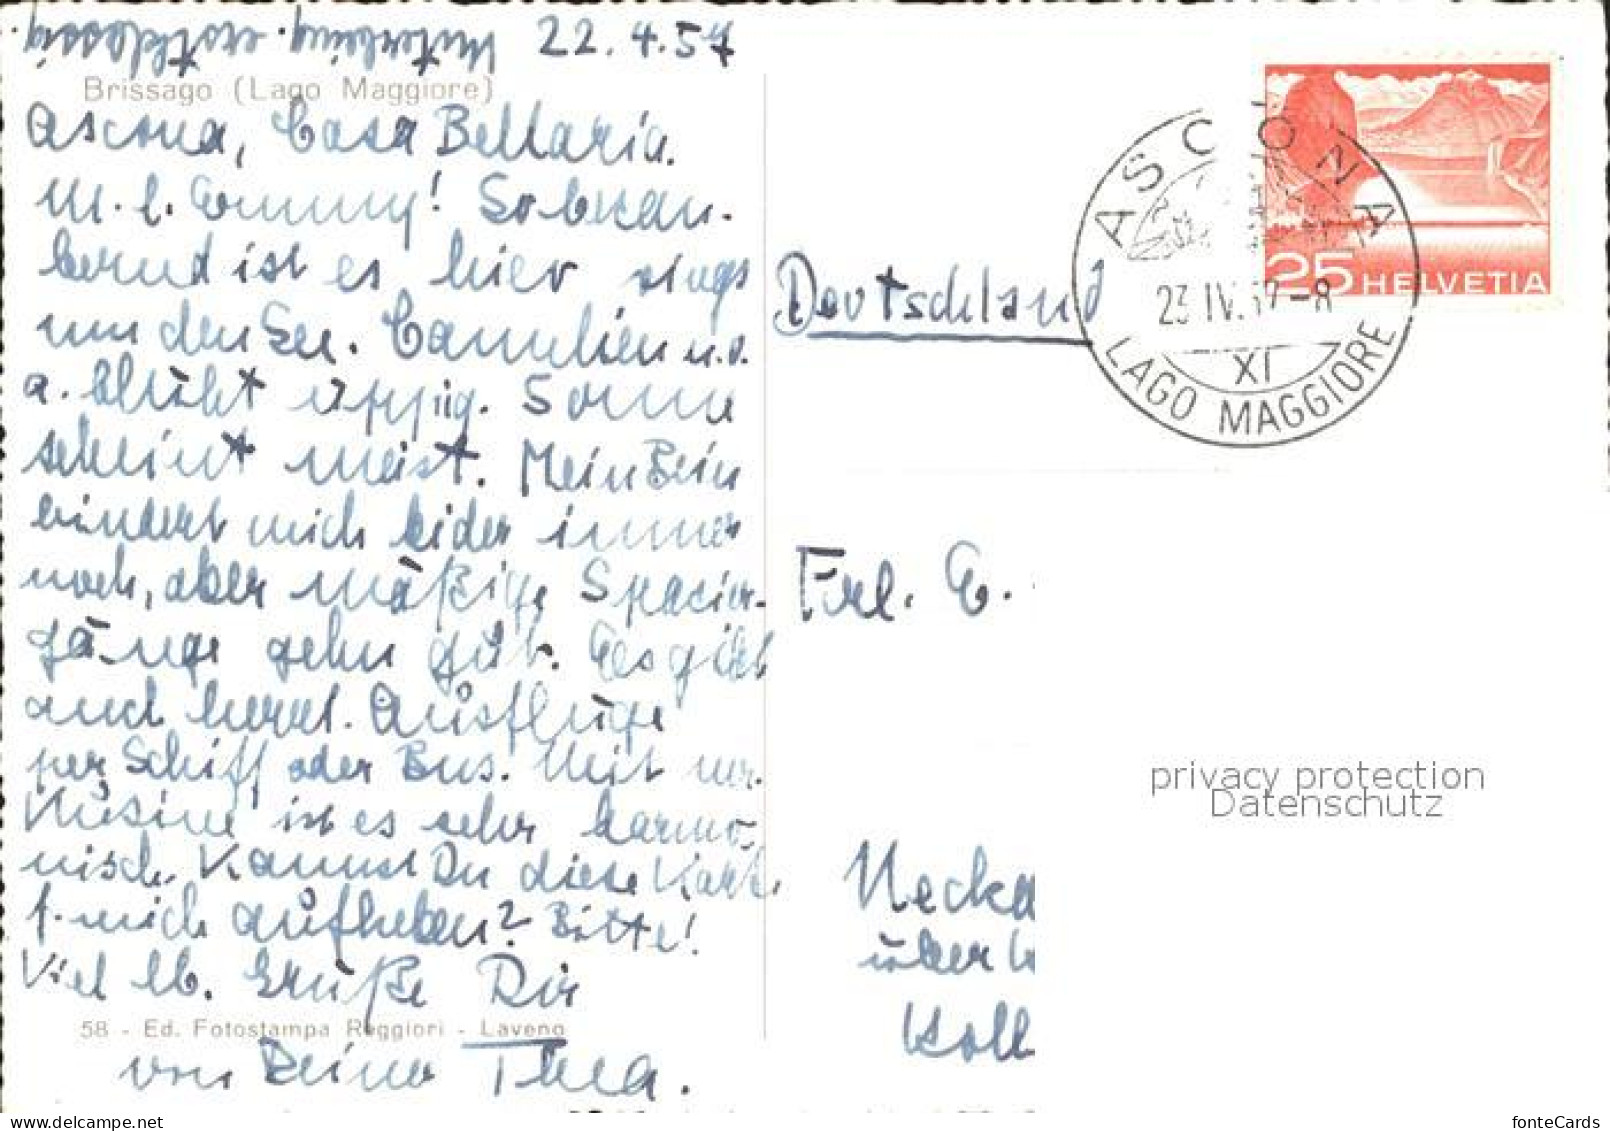 Unterbring. erstklassig.
22.4.57
Brissago (Lago Maggiore)
Ascona, Casa Bellaria.
M. l. Emmy! So bezau-
bernd ist es hier rings
um den See. Camelien u.s.
a. blüht üppig. Sonne
scheint meist. Mein Bein
hindert mich leider immer
noch, aber mäßige Spazier-
gänge gehn gut. Es gibt
auch herrl. Ausflüge
per Schiff oder Bus. Mit m.
Kusine ist es sehr harmo-
nisch. Kannst Du diese Karte
f. mich aufheben? Bitte!
Viel lb. Grüße Dir
58 - Ed. Fotostampa Reggiori - Laveno
von Deiner Thea.
Deutschland
ASCONA
23.IV.57-8
XI
LAGO MAGGIORE
25 HELVETIA
Frl. E.
privacy protection
Datenschutz
Necka
über
fonteCards